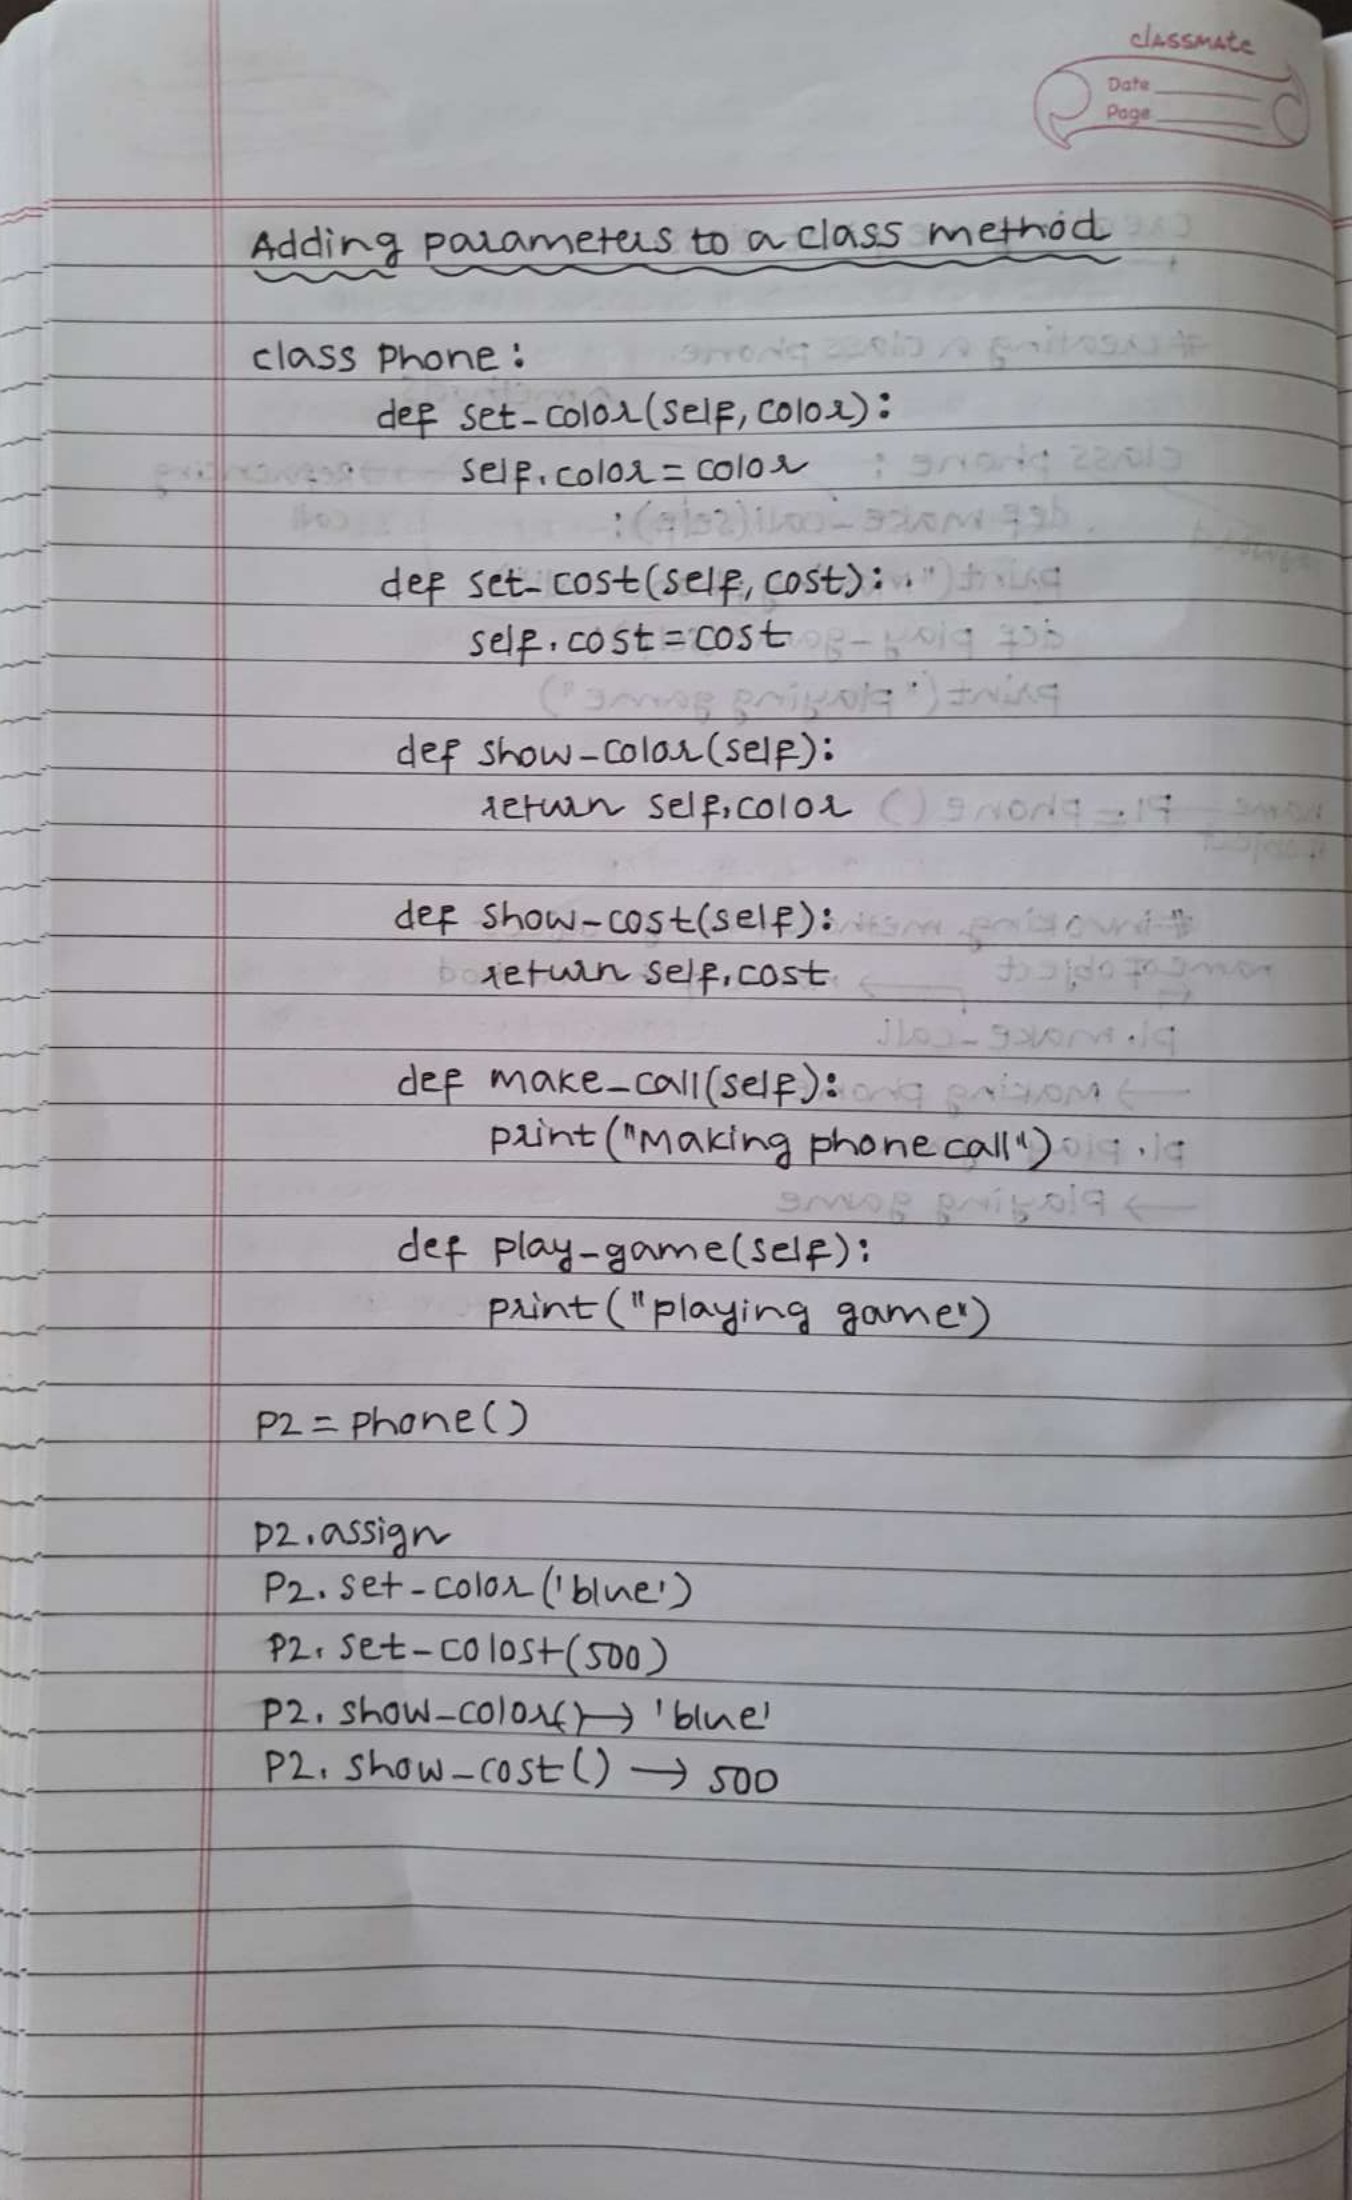 classmate
Date
Page
Adding parameters to a class method
class Phone:
def set-color(self, color):
self.color = color
def set-cost(self, cost):
self.cost = cost
def show-color(self):
return self.color
def show-cost(self):
return self.cost
def make_call(self):
print("Making phone call")
def play-game(self):
print("playing game")
P2 = phone()
p2.assign
P2. set-color('blue')
P2. set-colost(500)
P2. show_color() → 'blue'
P2. show_cost() → 500